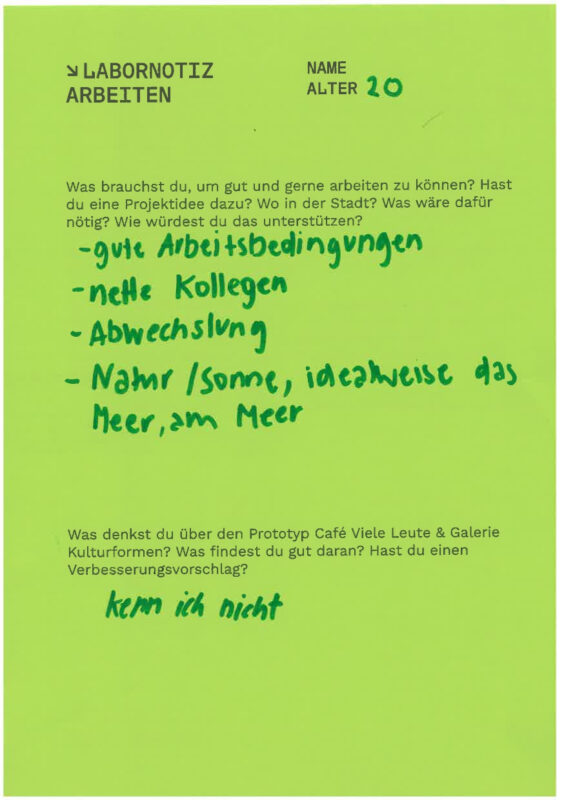 ↘ LABORNOTIZ
ARBEITEN
NAME
ALTER 20
Was brauchst du, um gut und gerne arbeiten zu können? Hast
du eine Projektidee dazu? Wo in der Stadt? Was wäre dafür
nötig? Wie würdest du das unterstützen?
- gute Arbeitsbedingungen
- nette Kollegen
- Abwechslung
- Natur / Sonne, idealweise das
Meer, am Meer
Was denkst du über den Prototyp Café Viele Leute & Galerie
Kulturformen? Was findest du gut daran? Hast du einen
Verbesserungsvorschlag?
kenn ich nicht